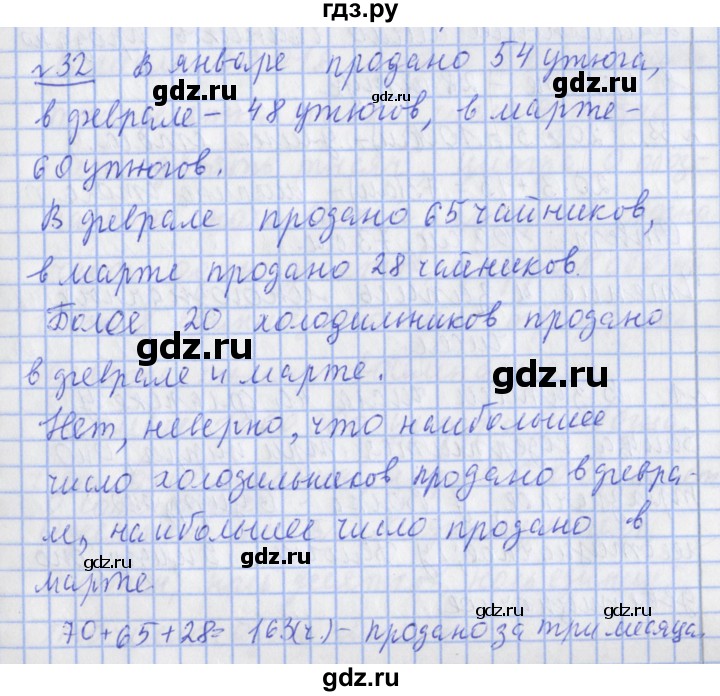 гдз.ру
№32 В январе продано 54 утюга,
в феврале - 48 утюгов, в марте -
60 утюгов.
В феврале продано 65 чайников,
в марте продано 28 чайников.
Более 20 холодильников продано
в феврале и марте.
Нет, неверно, что наибольшее
число холодильников продано в февра-
ле, наибольшее число продано в
марте.
70+65+28= 163(ч.) - продано за три месяца.
gdz.ru
gdz.ru
gdz.ru
gdz.ru
gdz.ru
gdz.ru
gdz.ru
gdz.ru
gdz.ru
gdz.ru
gdz.ru